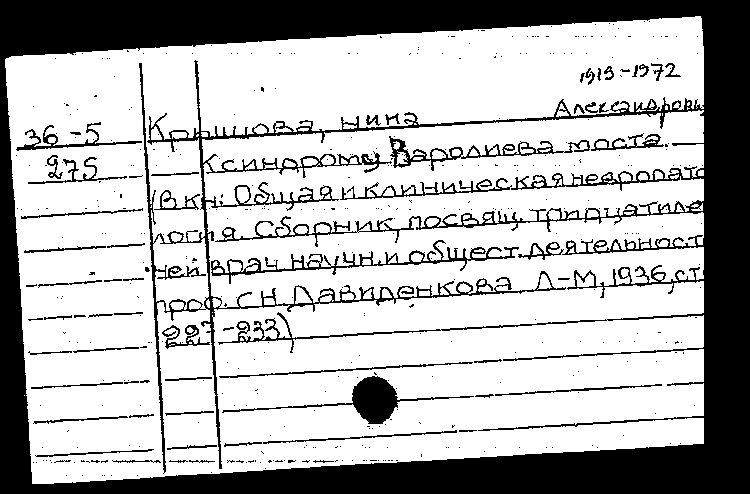 1919-1972
36-5 Крышова, Нина Александровн
275 К синдрому Варолиева моста
(В кн: Общая и клиническая невропато
логия. Сборник, посвящ. тридцатиле
ней врач. научн. и общест. деятельност
проф. С Н Давиденкова Л-М, 1936, ст
227-233)